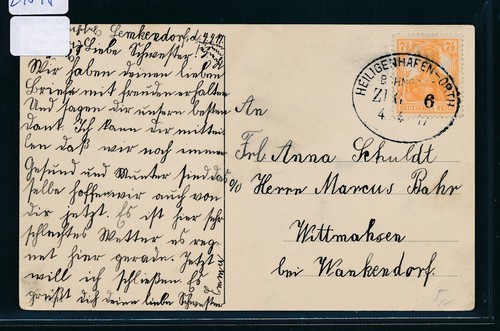 Lemkendorf, d. 4.4.17
Liebe Schwester!
Wir haben deinen lieben
Brief mit freuden erhalten
Und sagen dir unsern besten
Dank. Ich kann dir mittei-
len daß wir noch immer
Gesund und Munter sind das
selbe hoffen wir auch von
dir jetzt. Es ist hier sehr
schlechtes Wetter es reg-
net hier gerade. Jetzt
will ich schließen. Es
grüßt dich deine liebe Schwester
An
Frl. Anna Schuldt
c/o Herrn Marcus Bahr
Wittmaksen
bei Wankendorf.
7½ 7½
HEILIGENHAFEN-ORTH
BAHNPOST
ZUG 6
4. 4. 17